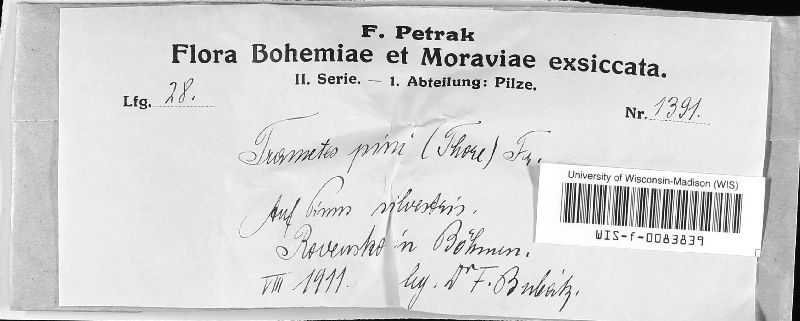 F. Petrak
Flora Bohemiae et Moraviae exsiccata.
II. Serie. — 1. Abteilung: Pilze.
Lfg. 28.
Nr. 1391.
Trametes pini (Thore) Fr.
University of Wisconsin-Madison (WIS)
WIS-f-0083839
Auf Pinus silvestris.
Rovensko in Böhmen.
VIII 1911. leg. Dr F. Bubák.